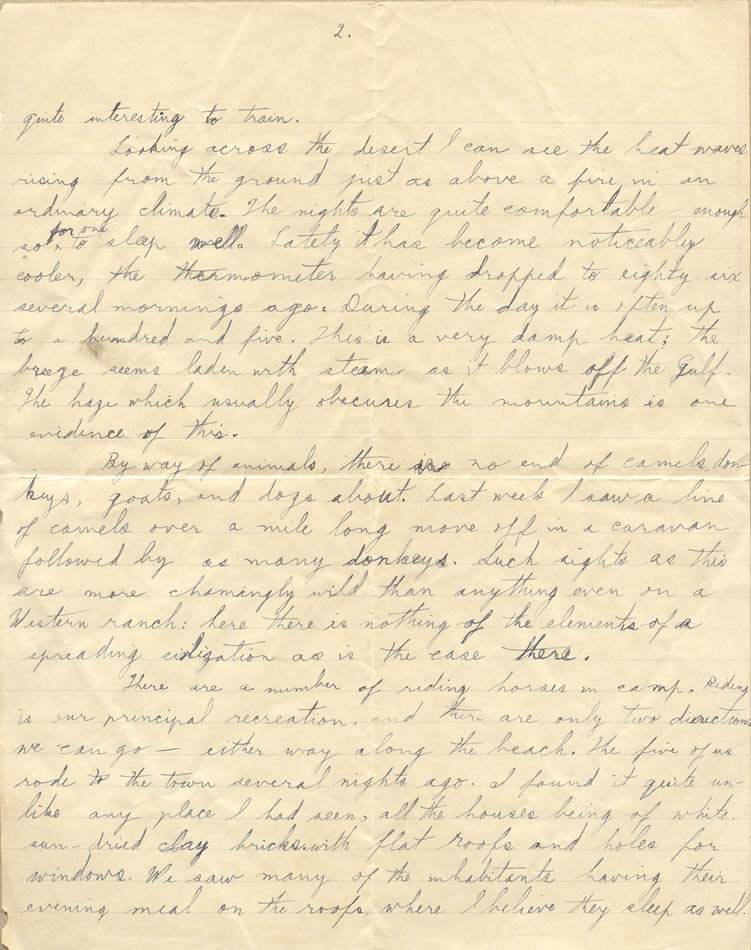 2.
quite interesting to train.
Looking across the desert I can see the heat waves
rising from the ground just as above a fire in an
ordinary climate. The nights are quite comfortable – enough
for one
so to sleep well. Lately it has become noticeably
cooler, the thermometer having dropped to eighty six
several mornings ago. During the day it is often up
to a hundred and five. This is a very damp heat; the
breeze seems laden with steam as it blows off the Gulf.
The haze which usually obscures the mountains is one
evidence of this.
By way of animals, there are no end of camels, don-
keys, goats, and dogs about. Last week I saw a line
of camels over a mile long move off in a caravan
followed by as many donkeys. Such sights as this
are more charmingly wild than anything even on a
Western ranch: here there is nothing of the elements of a
spreading civilization as is the case there.
There are a number of riding horses in camp. Riding
is our principal recreation, and there are only two directions
we can go – either way along the beach. The five of us
rode to the town several nights ago. I found it quite un-
like any place I had seen, all the houses being of white
sun-dried clay bricks with flat roofs and holes for
windows. We saw many of the inhabitants having their
evening meal on the roofs, where I believe they sleep as well.